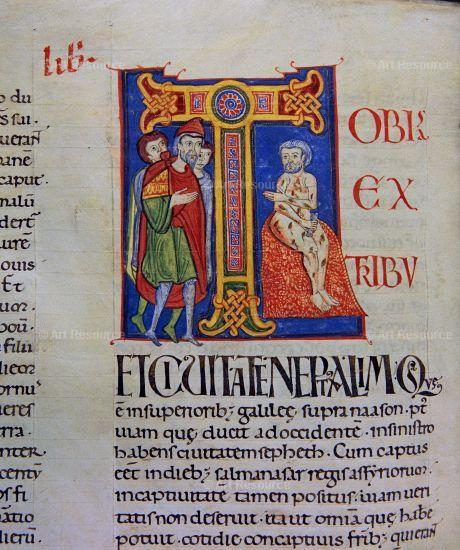 lib·
o du
uerant
bane
caput·
uire
ouis
Et
uor·
filii
licor
ornu
ieres
rra·
nter
os fi
natio
lierū·
T OBI
EX
TRIBV
ET CIVITATE NEPTALIM· Q̄ ē
ē insuperiorib; galileę supra naason· p̄t
uiam quę ducit adoccidentē· insinistro
habens ciuitatem sepheth· Cum captus
eēt indieb; salmanasar regis assyriorum·
incaptiuitate tamen positus· uiam ueri
tatis non deseruit· ita ut omīa quę habe
potuit· cotidie concaptiuis frib; qui eran̄
© Art Resource
© Art Resource
© Art Resource